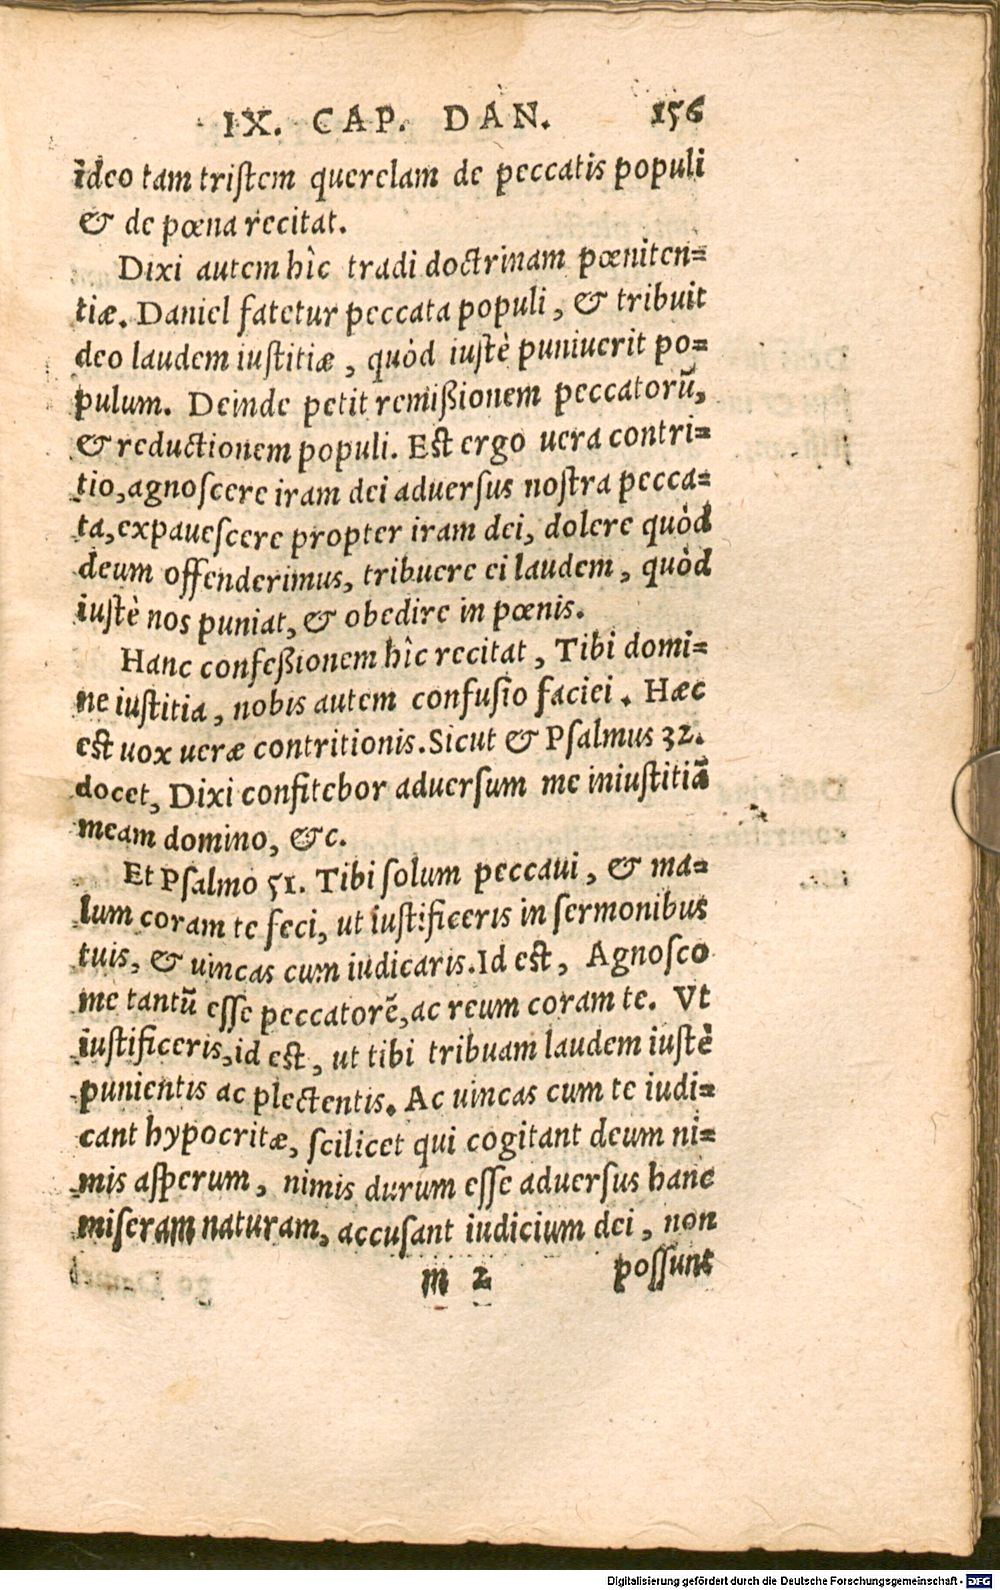 IX. CAP. DAN. 156
ideo tam triſtem querelam de peccatis populi
& de pœna recitat.
Dixi autem hîc tradi doctrinam pœniten=
tiæ. Daniel fatetur peccata populi, & tribuit
deo laudem iuſtitiæ, quòd iuſtè puniuerit po=
pulum. Deinde petit remißionem peccatorũ,
& reductionem populi. Eſt ergo uera contri=
tio, agnoſcere iram dei aduerſus noſtra pecca=
ta, expaueſcere propter iram dei, dolere quòd
deum offenderimus, tribuere ei laudem, quòd
iuſtè nos puniat, & obedire in pœnis.
Hanc confeßionem hîc recitat, Tibi domi=
ne iuſtitia, nobis autem confuſio faciei. Hæc
eſt uox ueræ contritionis. Sicut & Pſalmus 32.
docet, Dixi confitebor aduerſum me iniuſtitiã
meam domino, &c.
Et Pſalmo 51. Tibi ſolum peccaui, & ma=
lum coram te feci, ut iuſtificeris in ſermonibus
tuis, & uincas cum iudicaris. Id eſt, Agnoſco
me tantũ eſſe peccatorẽ, ac reum coram te. Vt
iuſtificeris, id eſt, ut tibi tribuam laudem iuſtè
punientis ac plectentis. Ac uincas cum te iudi=
cant hypocritæ, ſcilicet qui cogitant deum ni=
mis aſperum, nimis durum eſſe aduerſus hanc
miſeram naturam, accuſant iudicium dei, non
m 2 poſſunt
Digitalisierung gefördert durch die Deutsche Forschungsgemeinschaft - DFG